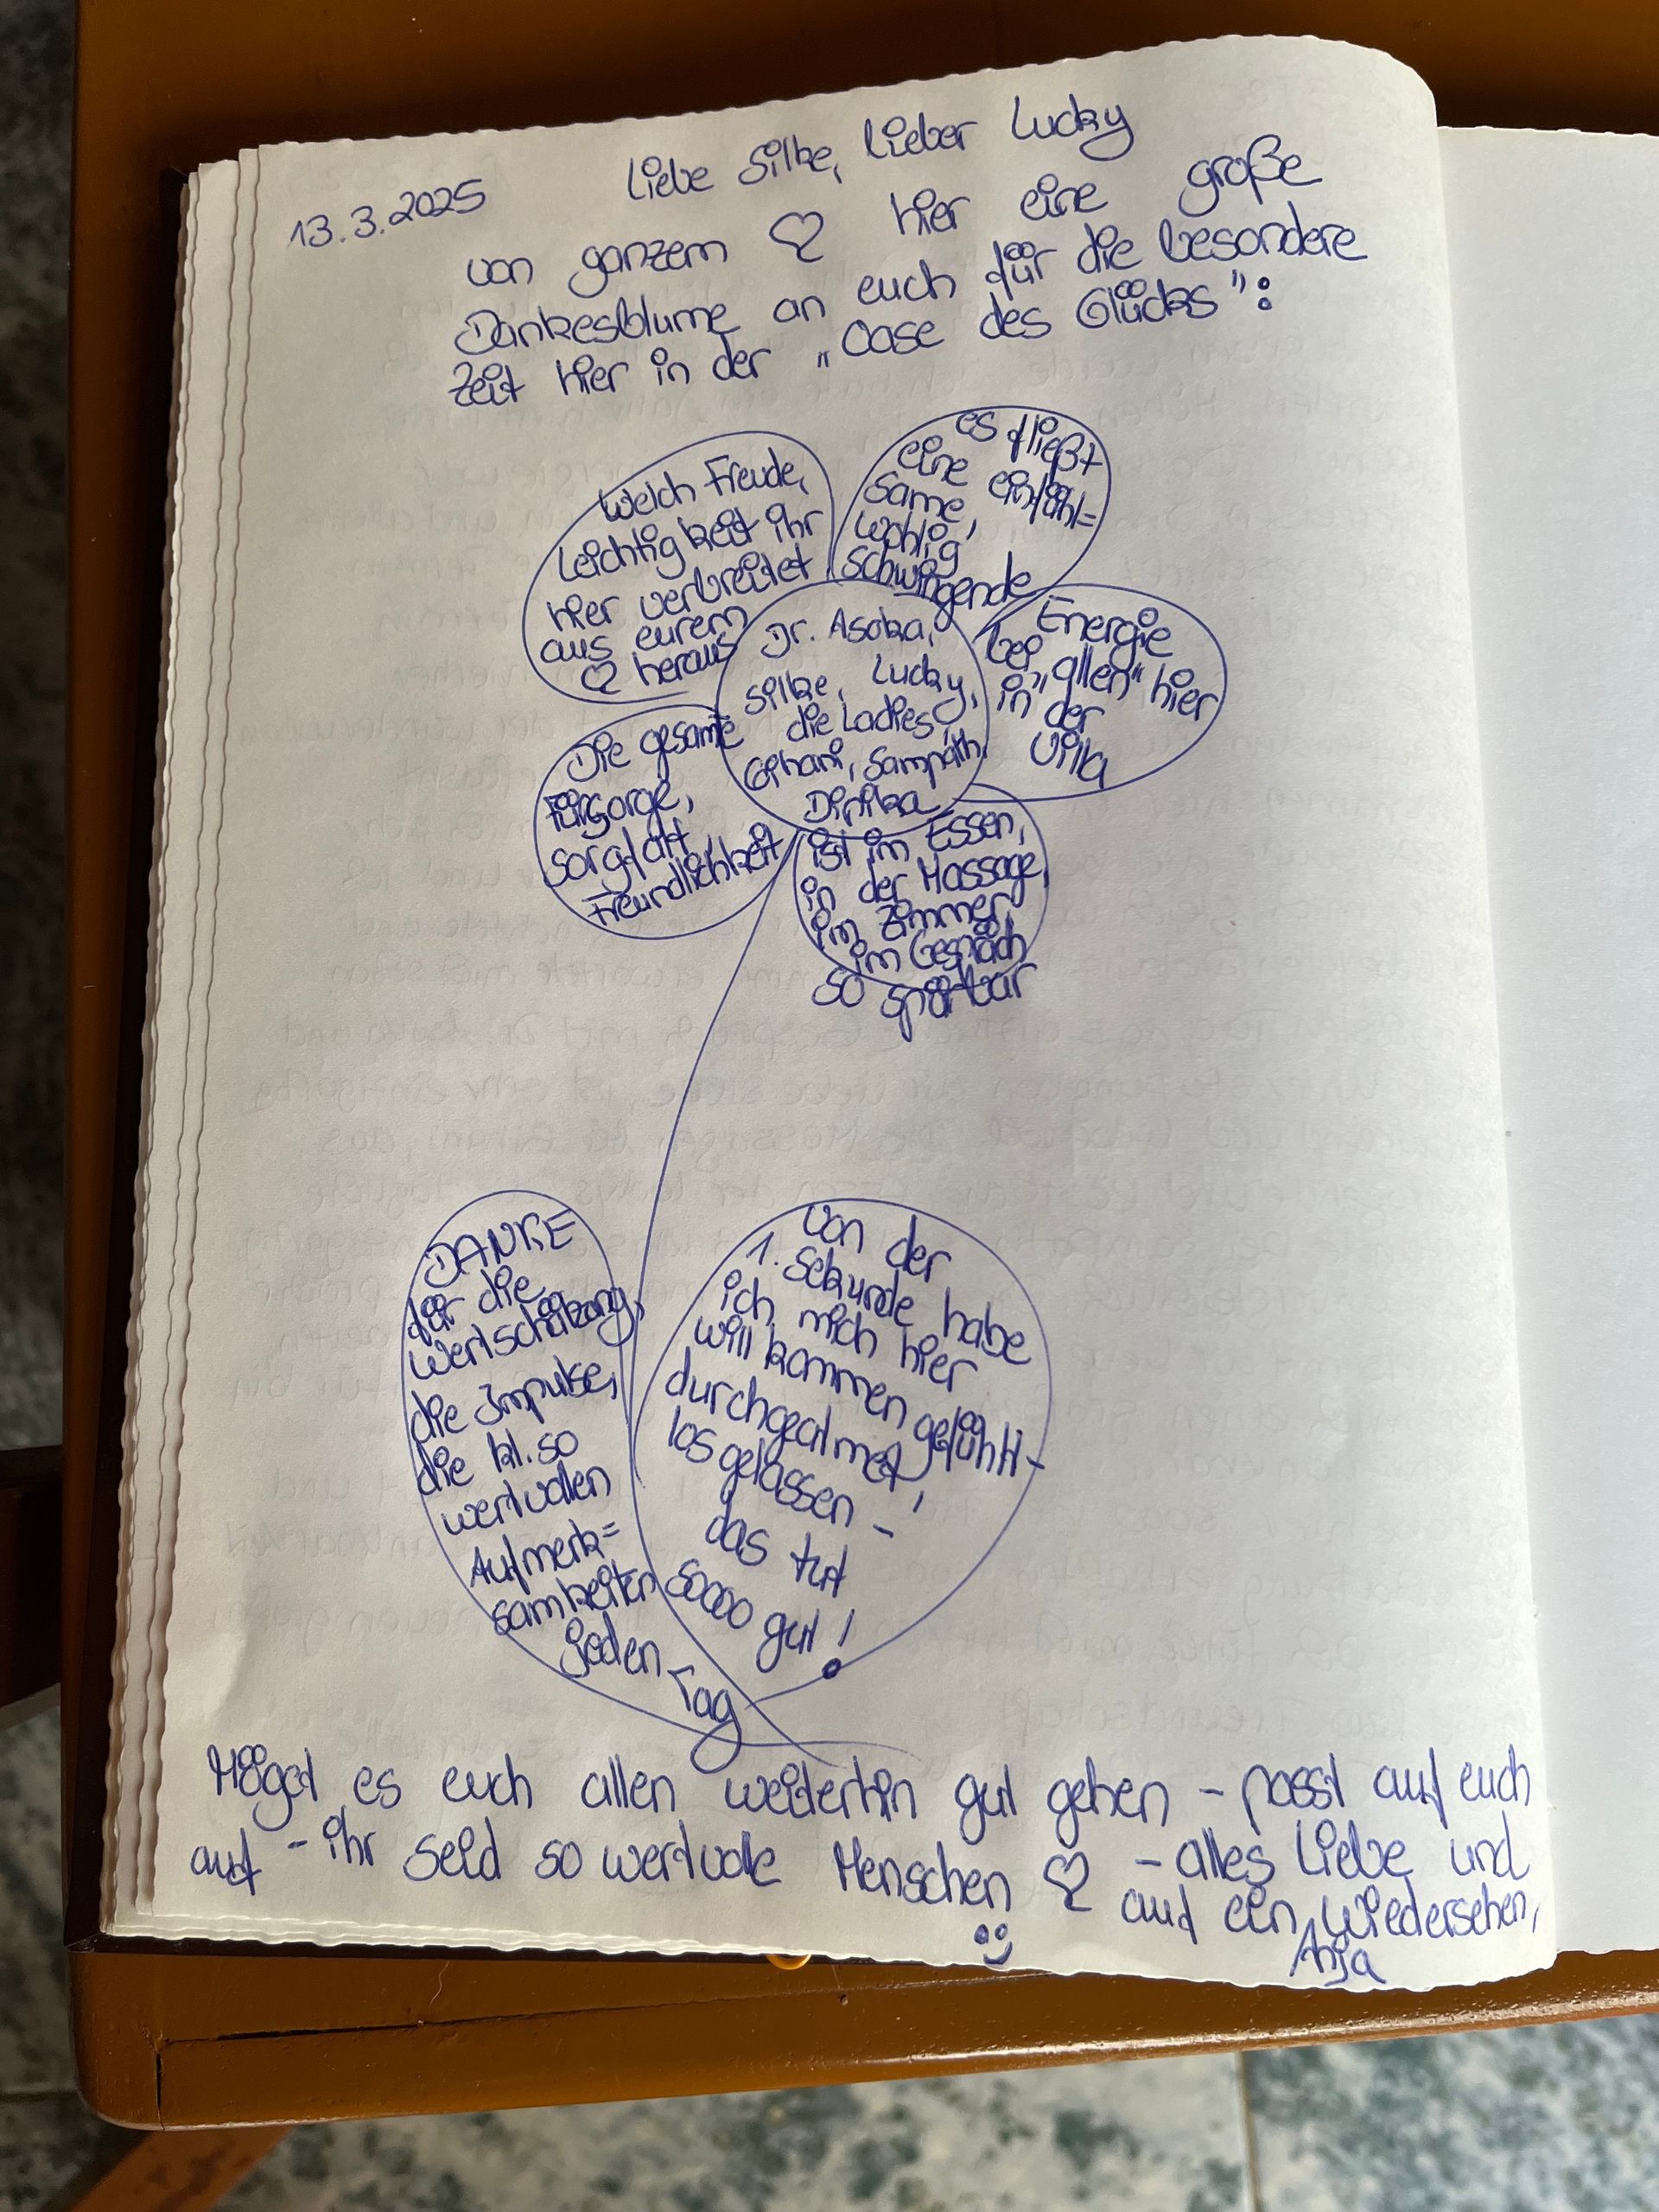 13.3.2025
Liebe Silke, lieber Lucky
von ganzem ♡ hier eine große
Dankesblume an euch für die besondere
Zeit hier in der „Oase des Glücks":
Welch Freude,
Leichtigkeit ihr
hier verbreitet
aus eurem
♡ heraus
es fließt
eine einfühl=
same,
wohlig
schwingende
Energie
bei „allen" hier
in der
Villa
Dr. Asoka,
Silke, Lucky,
die Ladies,
Gihani, Sampath
Dinika
Die gesamte
Fürsorge,
Sorgfalt,
Freundlichkeit
ist im Essen,
in der Massage,
im Zimmer,
im Gespräch
so spürbar
DANKE
für die
Wertschätzung,
die Impulse,
die kl. so
wertvollen
Aufmerk=
samkeiten
jeden
Tag
von der
1. Sekunde habe
ich mich hier
willkommen gefühlt -
durchgeatmet,
losgelassen -
das tut
soooo gut!
Möget es euch allen weiterhin gut gehen - passt auf euch
auf - ihr seid so wertvolle Menschen ♡ - alles Liebe und
auf ein Wiedersehen,
Anja